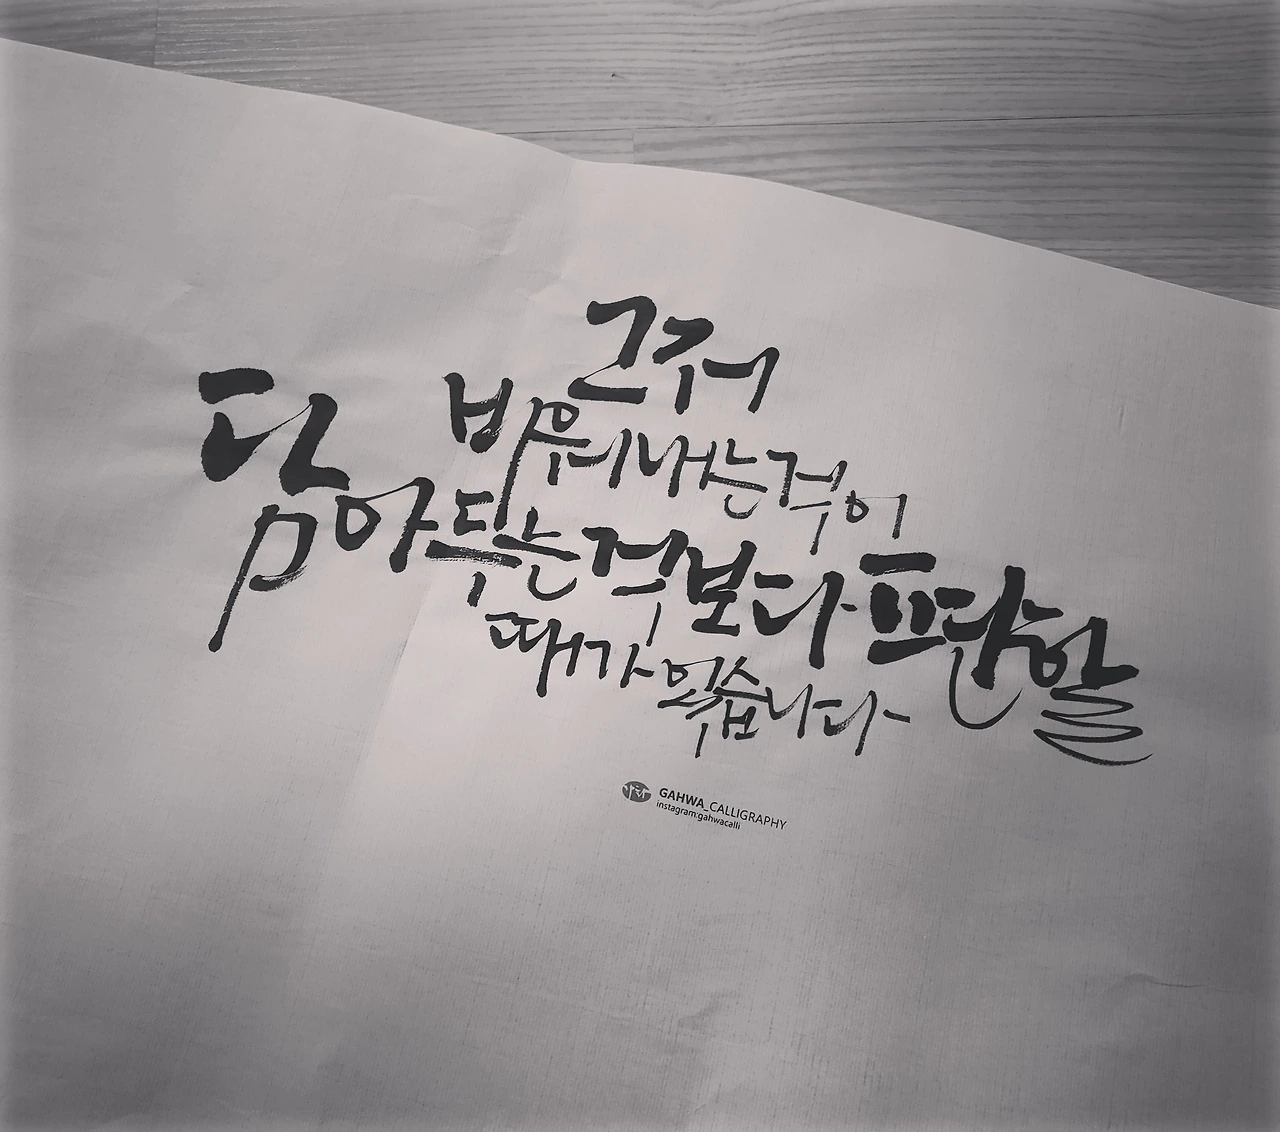 그저
비워내는 것이
담아두는 것보다 편안할
때가 있습니다
가화 GAHWA_CALLIGRAPHY
instagram:gahwacalli